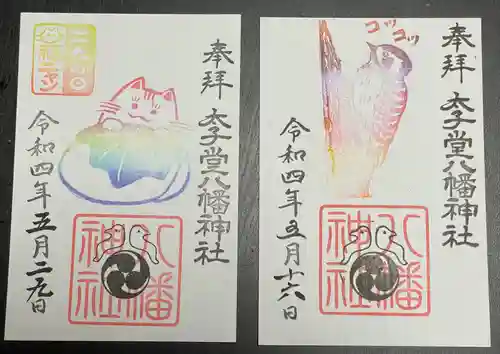 奉拝
太子堂八幡神社
令和四年五月二九日
八幡
神社
奉拝
太子堂八幡神社
コツ
コツ
令和四年五月十六日
八幡
神社